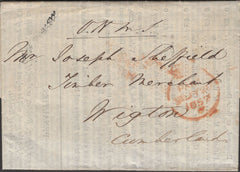 O.H.M.S.
Mr. Joseph Sheffield
Timber Merchant
Wigton
Cumberland
1857